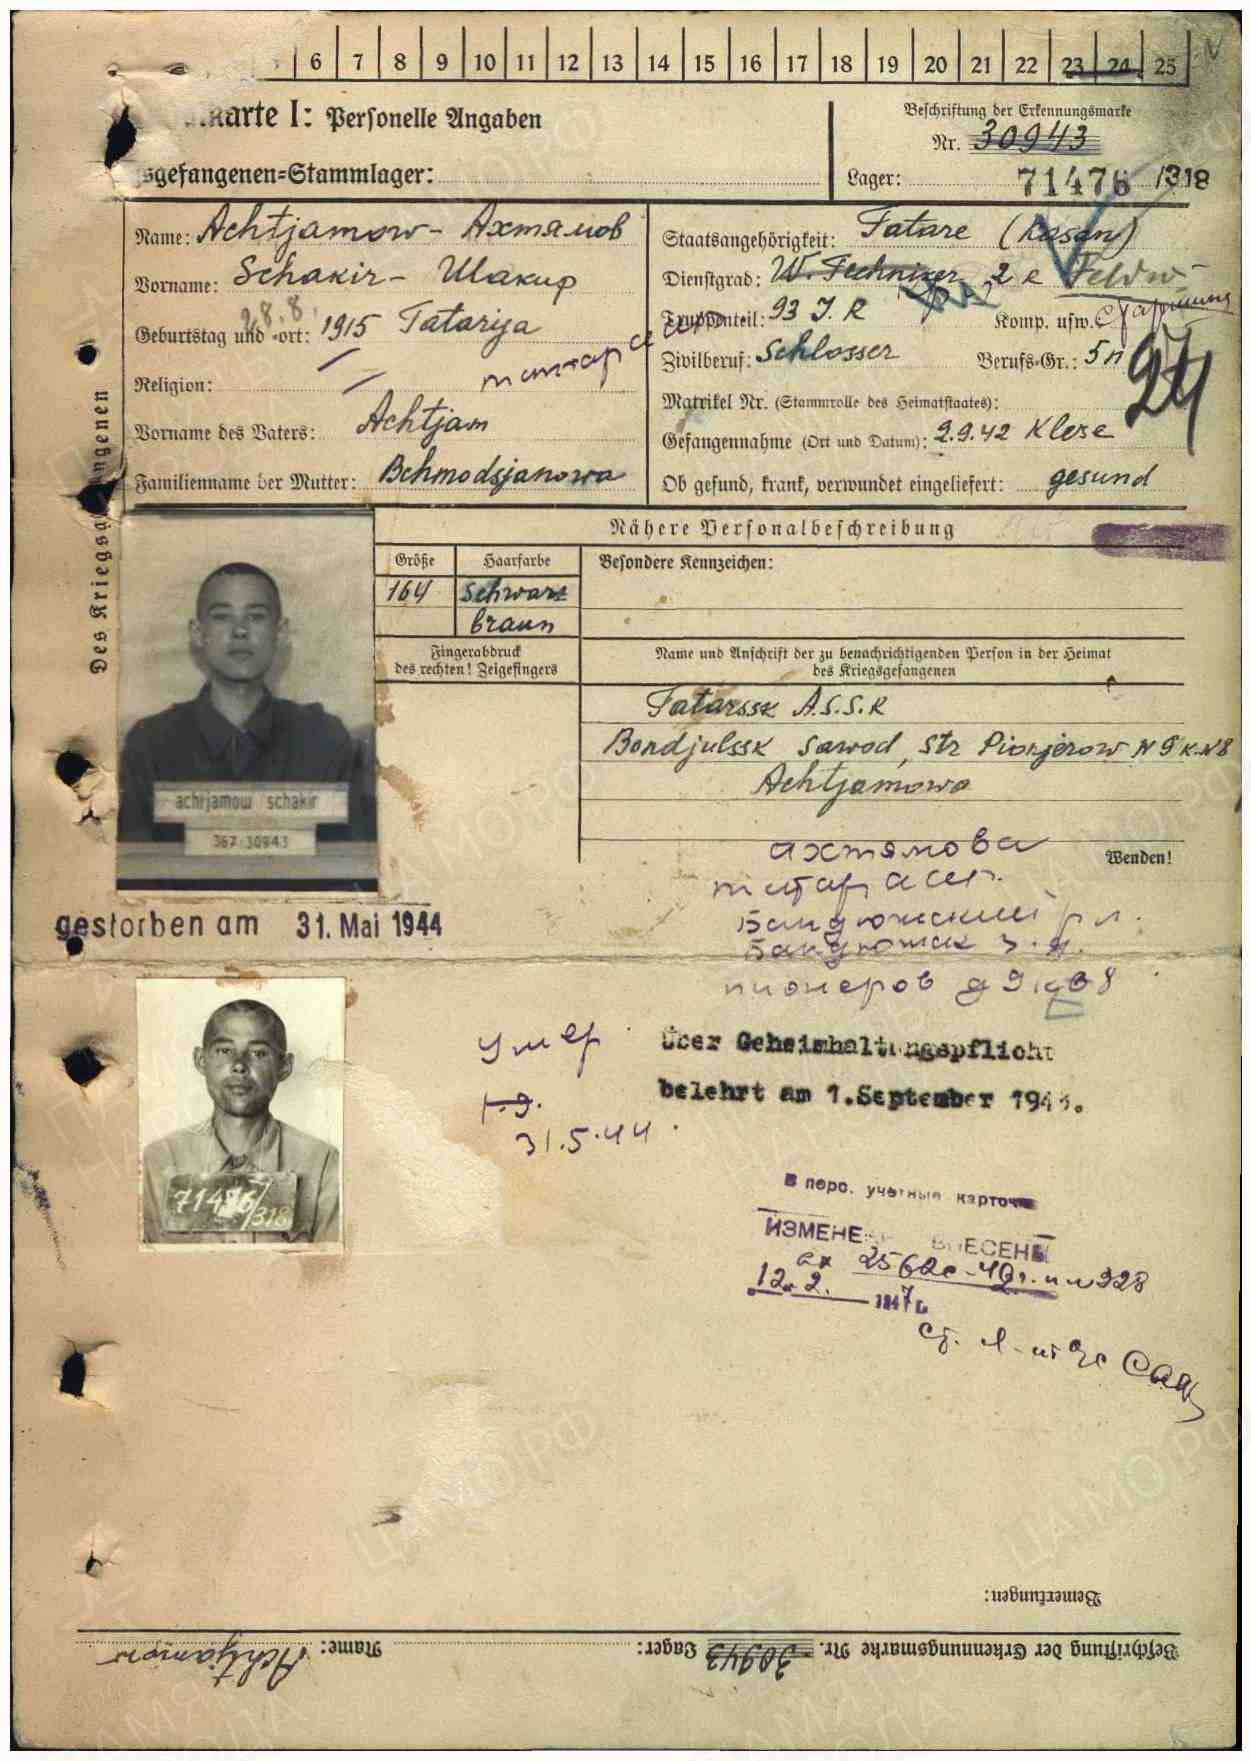 6 7 8 9 10 11 12 13 14 15 16 17 18 19 20 21 22 23 24 25
karte I: Personelle Angaben
Beschriftung der Erkennungsmarke
Nr. 30943
sgefangenen=Stammlager:
Lager: 71476 /318
Name: Achtjamow - Ахтямов
Vorname: Schakir - Шакир
Geburtstag und -ort: 28.8. 1915 Tatarija
татар асср
Religion:
Vorname des Vaters: Achtjam
Familienname der Mutter: Bchmodsjanowa
Staatsangehörigkeit: Tatare (Kasan)
Dienstgrad: W. Techniker 2 e Feldw
Truppenteil: 93 J. R Komp. usw. старшина
Zivilberuf: Schlosser Berufs-Gr.: 5 n
24
Matrikel Nr. (Stammrolle des Heimatstaates):
Gefangennahme (Ort und Datum): 2.9.42 Klese
Ob gesund, krank, verwundet eingeliefert: gesund
Des Kriegsgefangenen
Nähere Personalbeschreibung
Größe Haarfarbe Besondere Kennzeichen:
164 schwarz
braun
Fingerabdruck
des rechten! Zeigefingers
Name und Anschrift der zu benachrichtigenden Person in der Heimat
des Kriegsgefangenen
Tatarssk A.S.S.R
Bondjulssk sawod, str Pionjerow N 9 K.N8
Achtjamowa
achtjamow schakir
367 30943
Wenden!
ахтямова
татар асср.
Бандюжский р л.
Бандюжск з.д.
пионеров д 9 кв 8
gestorben am 31. Mai 1944
умер
1.9.
31.5.44.
über Geheimhaltungspflicht
belehrt am 1.September 1943.
71476/318
В перс. учетные карточки
ИЗМЕНЕНИЯ ВНЕСЕНЫ
вх 25620-42г. и н 328
12. 2. 1947 г.
ст. л-нт
Bemerkungen:
Beschriftung der Erkennungsmarke Nr. 30943 Lager: Name: Achtjamow